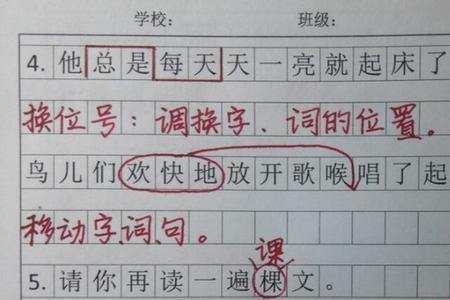 学校： 班级：
4. 他总是每天天一亮就起床了
换位号：调换字、词的位置。
鸟儿们欢快地放开歌喉唱了起
移动字、词、句。
课
5. 请你再读一遍棵文。